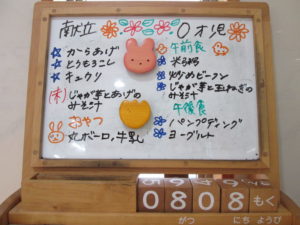 献立
からあげ
とうもろこし
キュウリ
(未) じゃが芋とあげの
みそ汁
おやつ
丸ボーロ、牛乳
0才児
午前食
米
炒めビーフン
じゃが芋と玉ねぎの
みそ汁
午後食
パンプディング
ヨーグルト
0 8 0 8 もく
がつ にち ようび